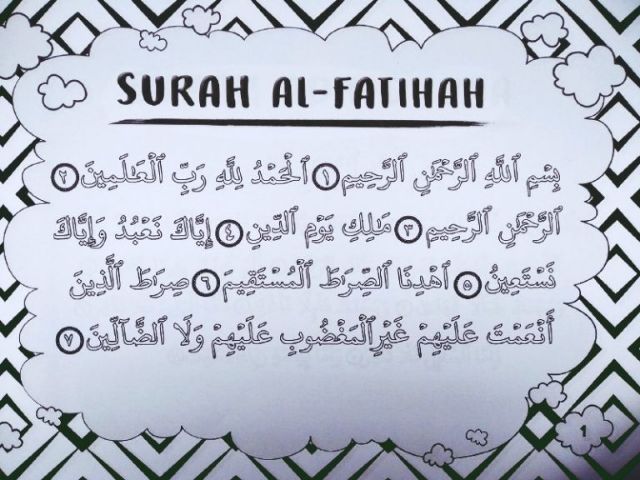 SURAH AL-FATIHAH
بِسْمِ ٱللَّهِ ٱلرَّحْمَٰنِ ٱلرَّحِيمِ ١ ٱلْحَمْدُ لِلَّهِ رَبِّ ٱلْعَٰلَمِينَ ٢
ٱلرَّحْمَٰنِ ٱلرَّحِيمِ ٣ مَٰلِكِ يَوْمِ ٱلدِّينِ ٤ إِيَّاكَ نَعْبُدُ وَإِيَّاكَ
نَسْتَعِينُ ٥ ٱهْدِنَا ٱلصِّرَٰطَ ٱلْمُسْتَقِيمَ ٦ صِرَٰطَ ٱلَّذِينَ
أَنْعَمْتَ عَلَيْهِمْ غَيْرِ ٱلْمَغْضُوبِ عَلَيْهِمْ وَلَا ٱلضَّآلِّينَ ٧
1